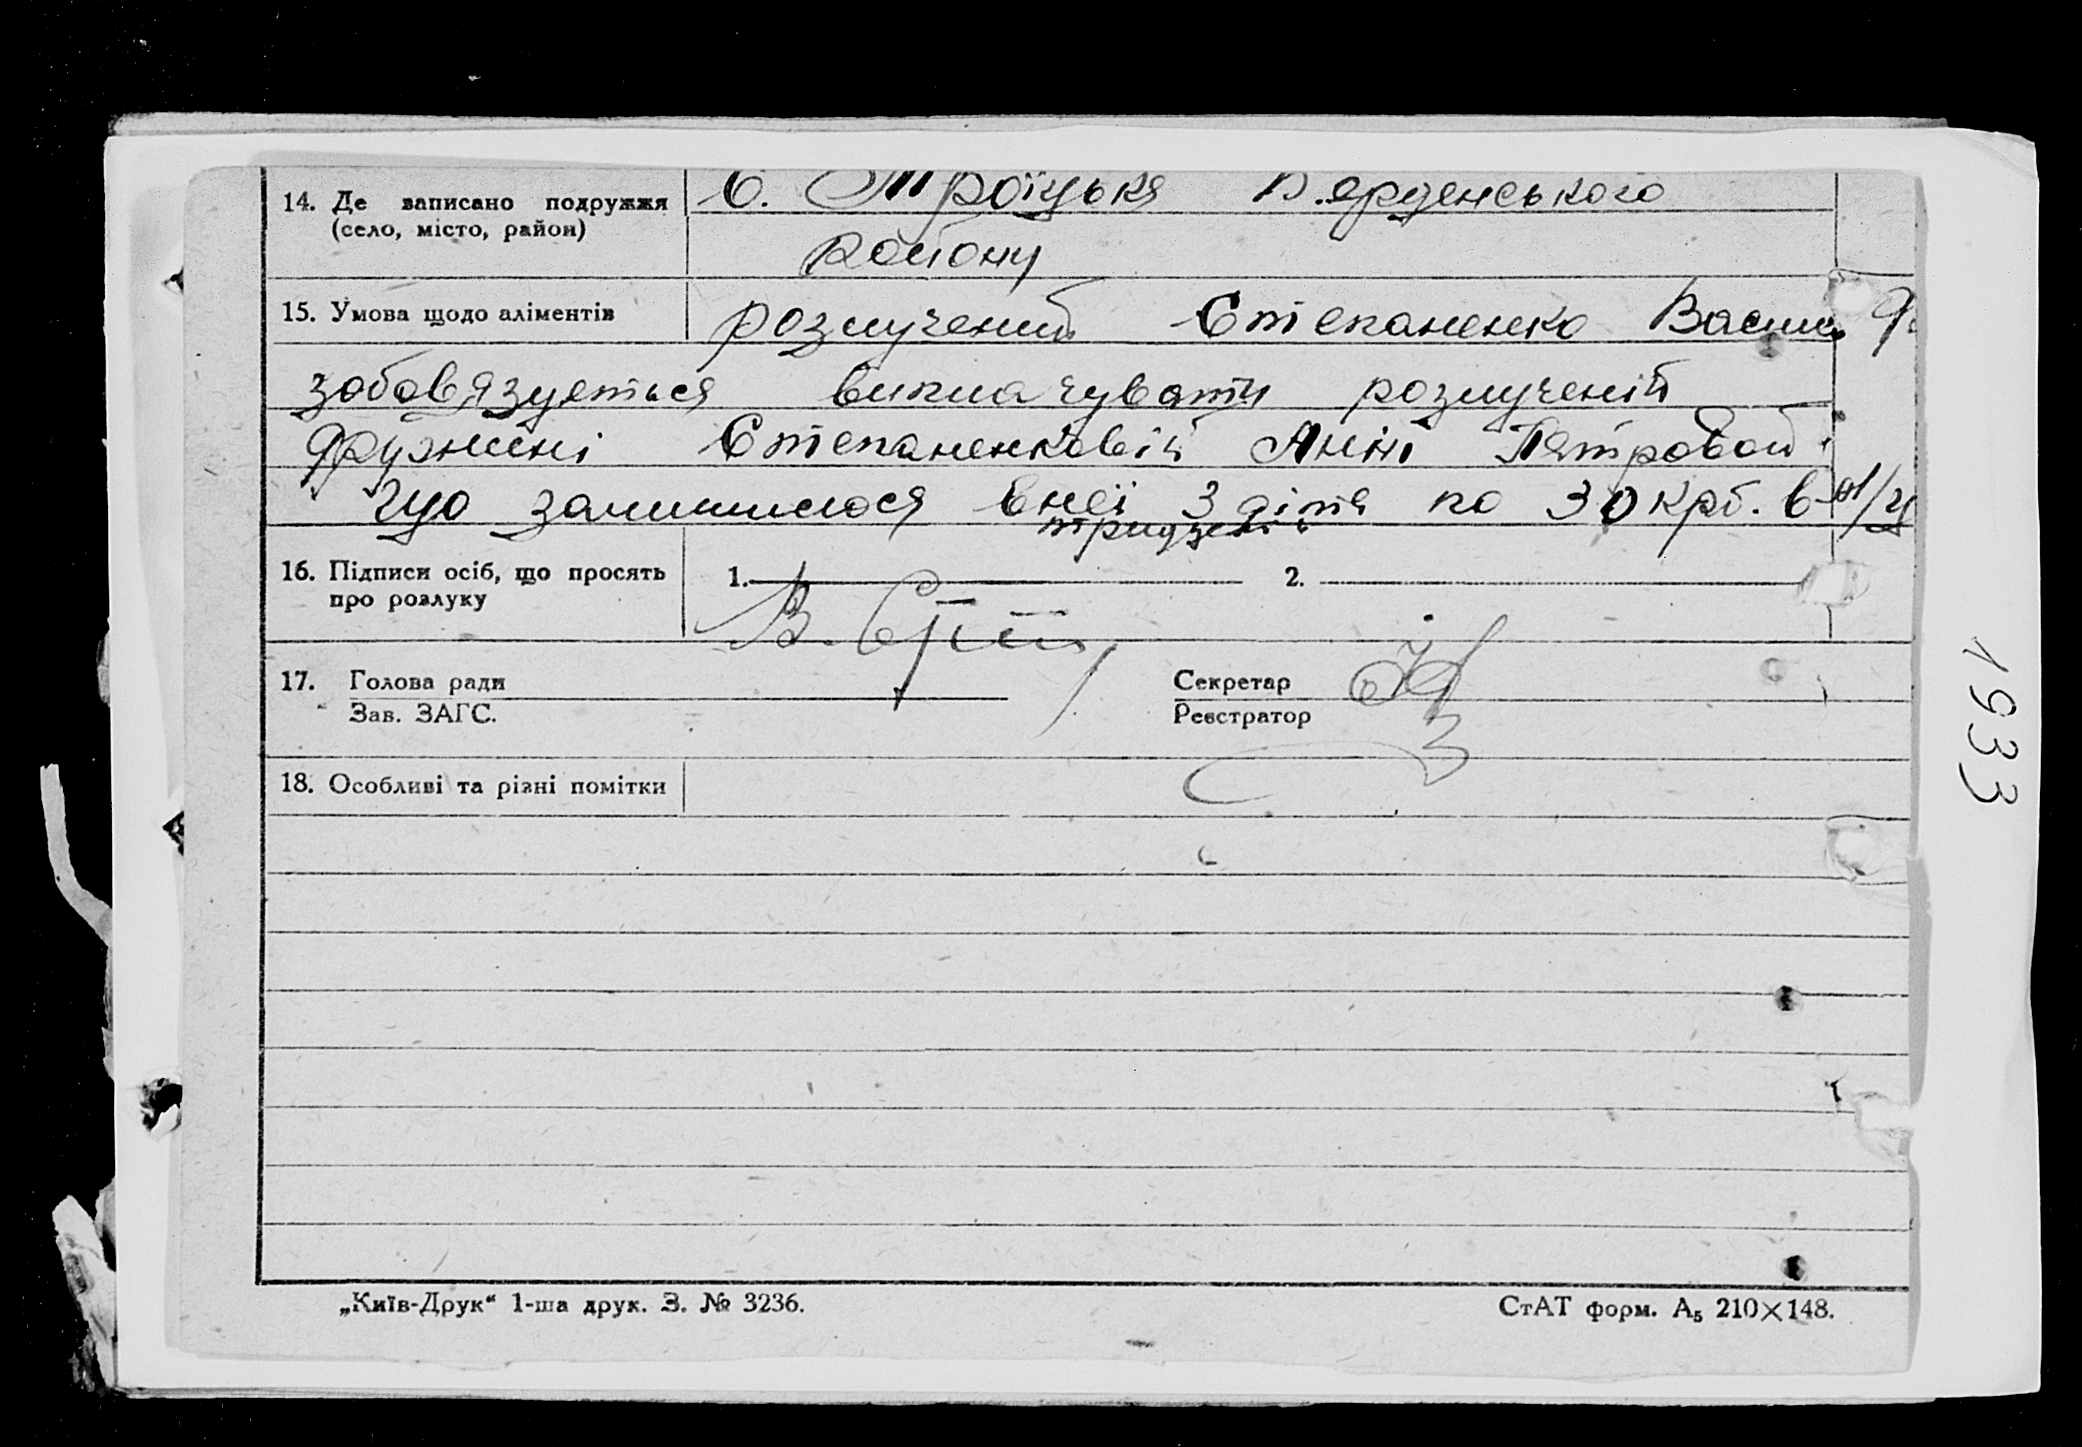 14. Де записано подружжя С. Троїцька Бердянського
(село, місто, район) району
15. Умова щодо аліментів розлучений Степаненко Васил
забовязуеться виплачувати розлученій
дружині Степаненковій Анні Петровой
що залишилося внеї 3 дітя по 30 крб. в м/ц
тридцять
16. Підписи осіб, що просять 1. 2.
про розлуку
17. Голова ради Секретар
Зав. ЗАГС. Реєстратор
18. Особливі та різні помітки
„Київ-Друк“ 1-ша друк. З. № 3236. СтАТ форм. А₅ 210×148.
1933